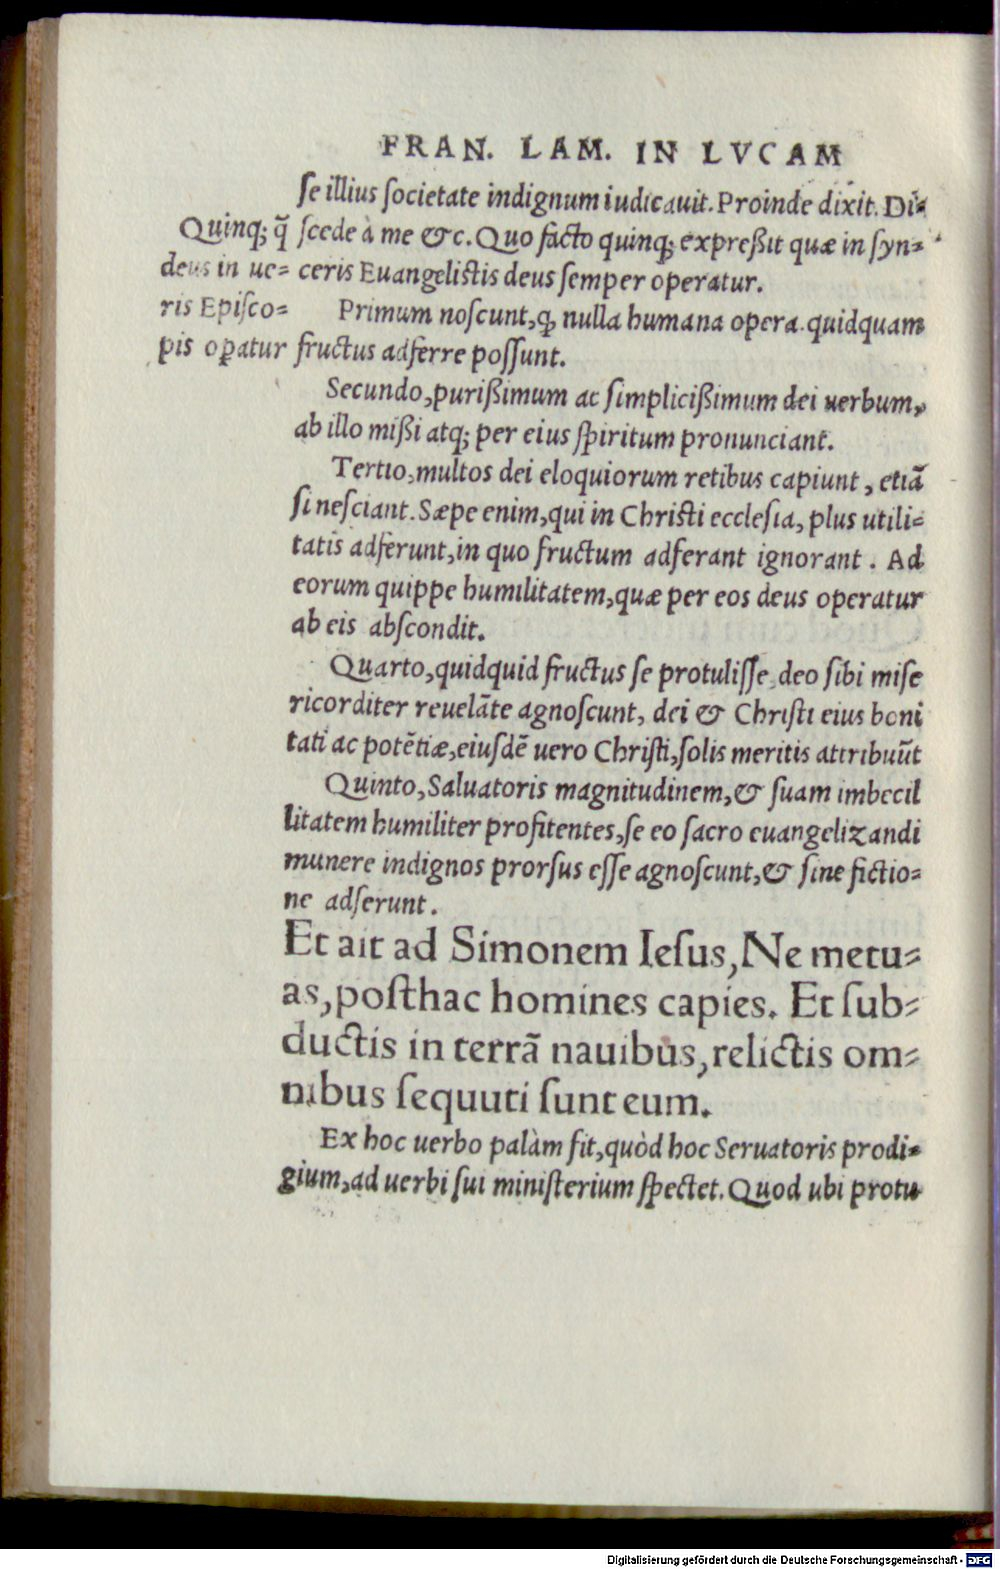 FRAN. LAM. IN LVCAM
ſe illius ſocietate indignum iudicauit. Proinde dixit. Di⸗
ſcede à me &c. Quo facto quinq; expreßit quæ in ſyn⸗
ceris Euangeliſtis deus ſemper operatur.
Quinq; q̃
deus in ue⸗
ris Epiſco⸗
pis oꝑatur
Primum noſcunt, ꝙ nulla humana opera quidquam
fructus adferre poſſunt.
Secundo, purißimum ac ſimplicißimum dei uerbum,
ab illo mißi atq; per eius ſpiritum pronunciant.
Tertio, multos dei eloquiorum retibus capiunt, etiã
ſi neſciant. Sæpe enim, qui in Chriſti eccleſia, plus utili⸗
tatis adferunt, in quo fructum adferant ignorant. Ad
eorum quippe humilitatem, quæ per eos deus operatur
ab eis abſcondit.
Quarto, quidquid fructus ſe protuliſſe, deo ſibi miſe
ricorditer reuelãte agnoſcunt, dei & Chriſti eius boni
tati ac potẽtiæ, eiuſdẽ uero Chriſti, ſolis meritis attribuũt
Quinto, Saluatoris magnitudinem, & ſuam imbecil
litatem humiliter profitentes, ſe eo ſacro euangelizandi
munere indignos prorſus eſſe agnoſcunt, & ſine fictio⸗
ne adſerunt.
Et ait ad Simonem Ieſus, Ne metu⸗
as, poſthac homines capies. Et ſub⸗
ductis in terrã nauibus, relictis om⸗
nibus ſequuti ſunt eum.
Ex hoc uerbo palàm fit, quòd hoc Seruatoris prodi⸗
gium, ad uerbi ſui miniſterium ſpectet. Quod ubi protu
Digitalisierung gefördert durch die Deutsche Forschungsgemeinschaft - DFG